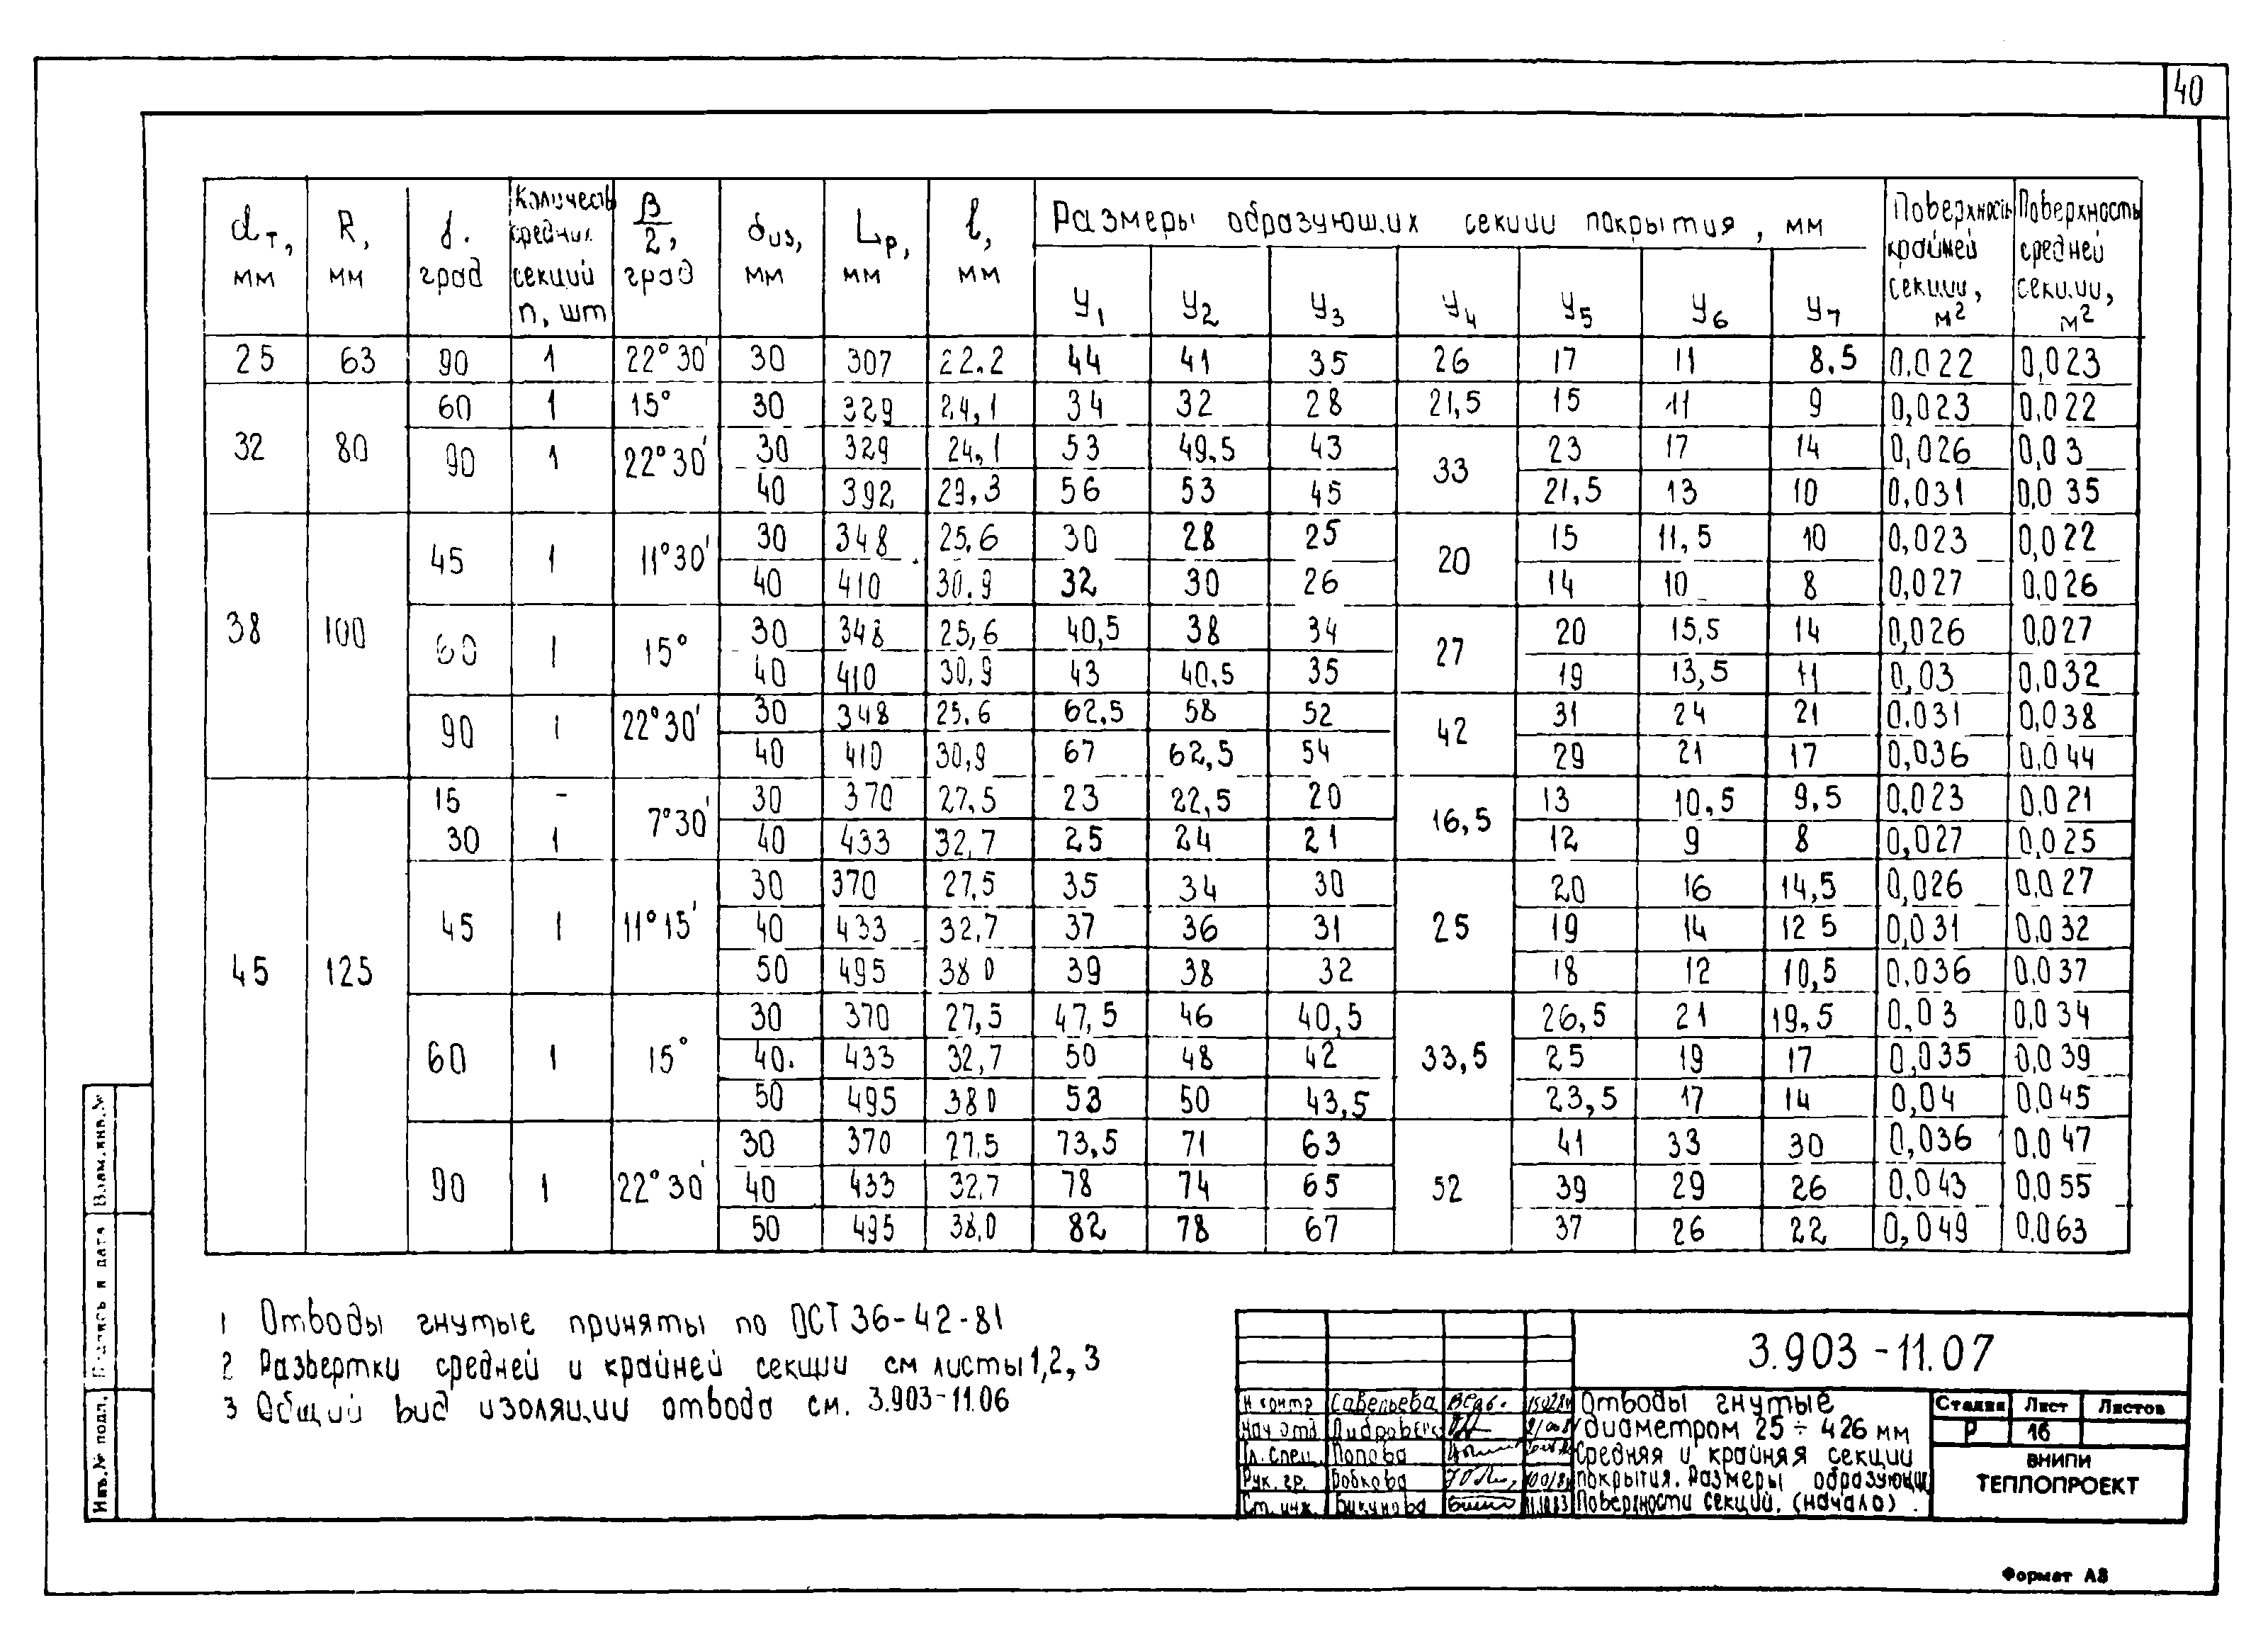 40
dт, мм R, мм γ. град Количеств средних секций n, шт β/2, град δиз, мм Lр, мм l, мм Размеры образующих секции покрытия, мм Поверхность крайней секции, м² Поверхность средней секции, м²
У1 У2 У3 У4 У5 У6 У7
25 63 90 1 22°30' 30 307 22.2 44 41 35 26 17 11 8,5 0,022 0,023
32 80 60 1 15° 30 329 24,1 34 32 28 21,5 15 11 9 0,023 0,022
90 1 22°30' 30 329 24,1 53 49,5 43 33 23 17 14 0,026 0,03
40 392 29,3 56 53 45 21,5 13 10 0,031 0,035
38 100 45 1 11°30' 30 348 25,6 30 28 25 20 15 11,5 10 0,023 0,022
40 410 30.9 32 30 26 14 10 8 0,027 0,026
60 1 15° 30 348 25,6 40,5 38 34 27 20 15,5 14 0,026 0,027
40 410 30,9 43 40,5 35 19 13,5 11 0,03 0,032
90 1 22°30' 30 348 25,6 62,5 58 52 42 31 24 21 0,031 0,038
40 410 30,9 67 62,5 54 29 21 17 0,036 0,044
45 125 15 - 7°30' 30 370 27,5 23 22,5 20 16,5 13 10,5 9,5 0,023 0,021
30 1 40 433 32,7 25 24 21 12 9 8 0,027 0,025
45 1 11°15' 30 370 27,5 35 34 30 25 20 16 14,5 0,026 0,027
40 433 32,7 37 36 31 19 14 12 5 0,031 0,032
50 495 38 0 39 38 32 18 12 10,5 0,036 0,037
60 1 15° 30 370 27,5 47,5 46 40,5 33,5 26,5 21 19,5 0,03 0,034
40. 433 32,7 50 48 42 25 19 17 0,035 0,039
50 495 38 0 53 50 43,5 23,5 17 14 0,04 0,045
90 1 22°30' 30 370 27,5 73,5 71 63 52 41 33 30 0,036 0,047
40 433 32,7 78 74 65 39 29 26 0,043 0,055
50 495 38,0 82 78 67 37 26 22 0,049 0,063
1 Отводы гнутые приняты по ОСТ 36-42-81
2 Развертки средней и крайней секции см листы 1,2,3
3 Общий вид изоляции отвода см. 3.903-11.06
3.903-11.07
Н контр Савельева
Нач отд
Гл. спец. Попова
Рук. гр. Бобкова
Ст. инж. Бикунова
Отводы гнутые
диаметром 25 ÷ 426 мм
Средняя и крайняя секции
покрытия. Размеры образующ
Поверхности секций. (начало).
Стадия Лист Листов
Р 16
ВНИПИ
ТЕПЛОПРОЕКТ
Инв.№ подл. Подпись и дата Взам.инв.№
Формат А3